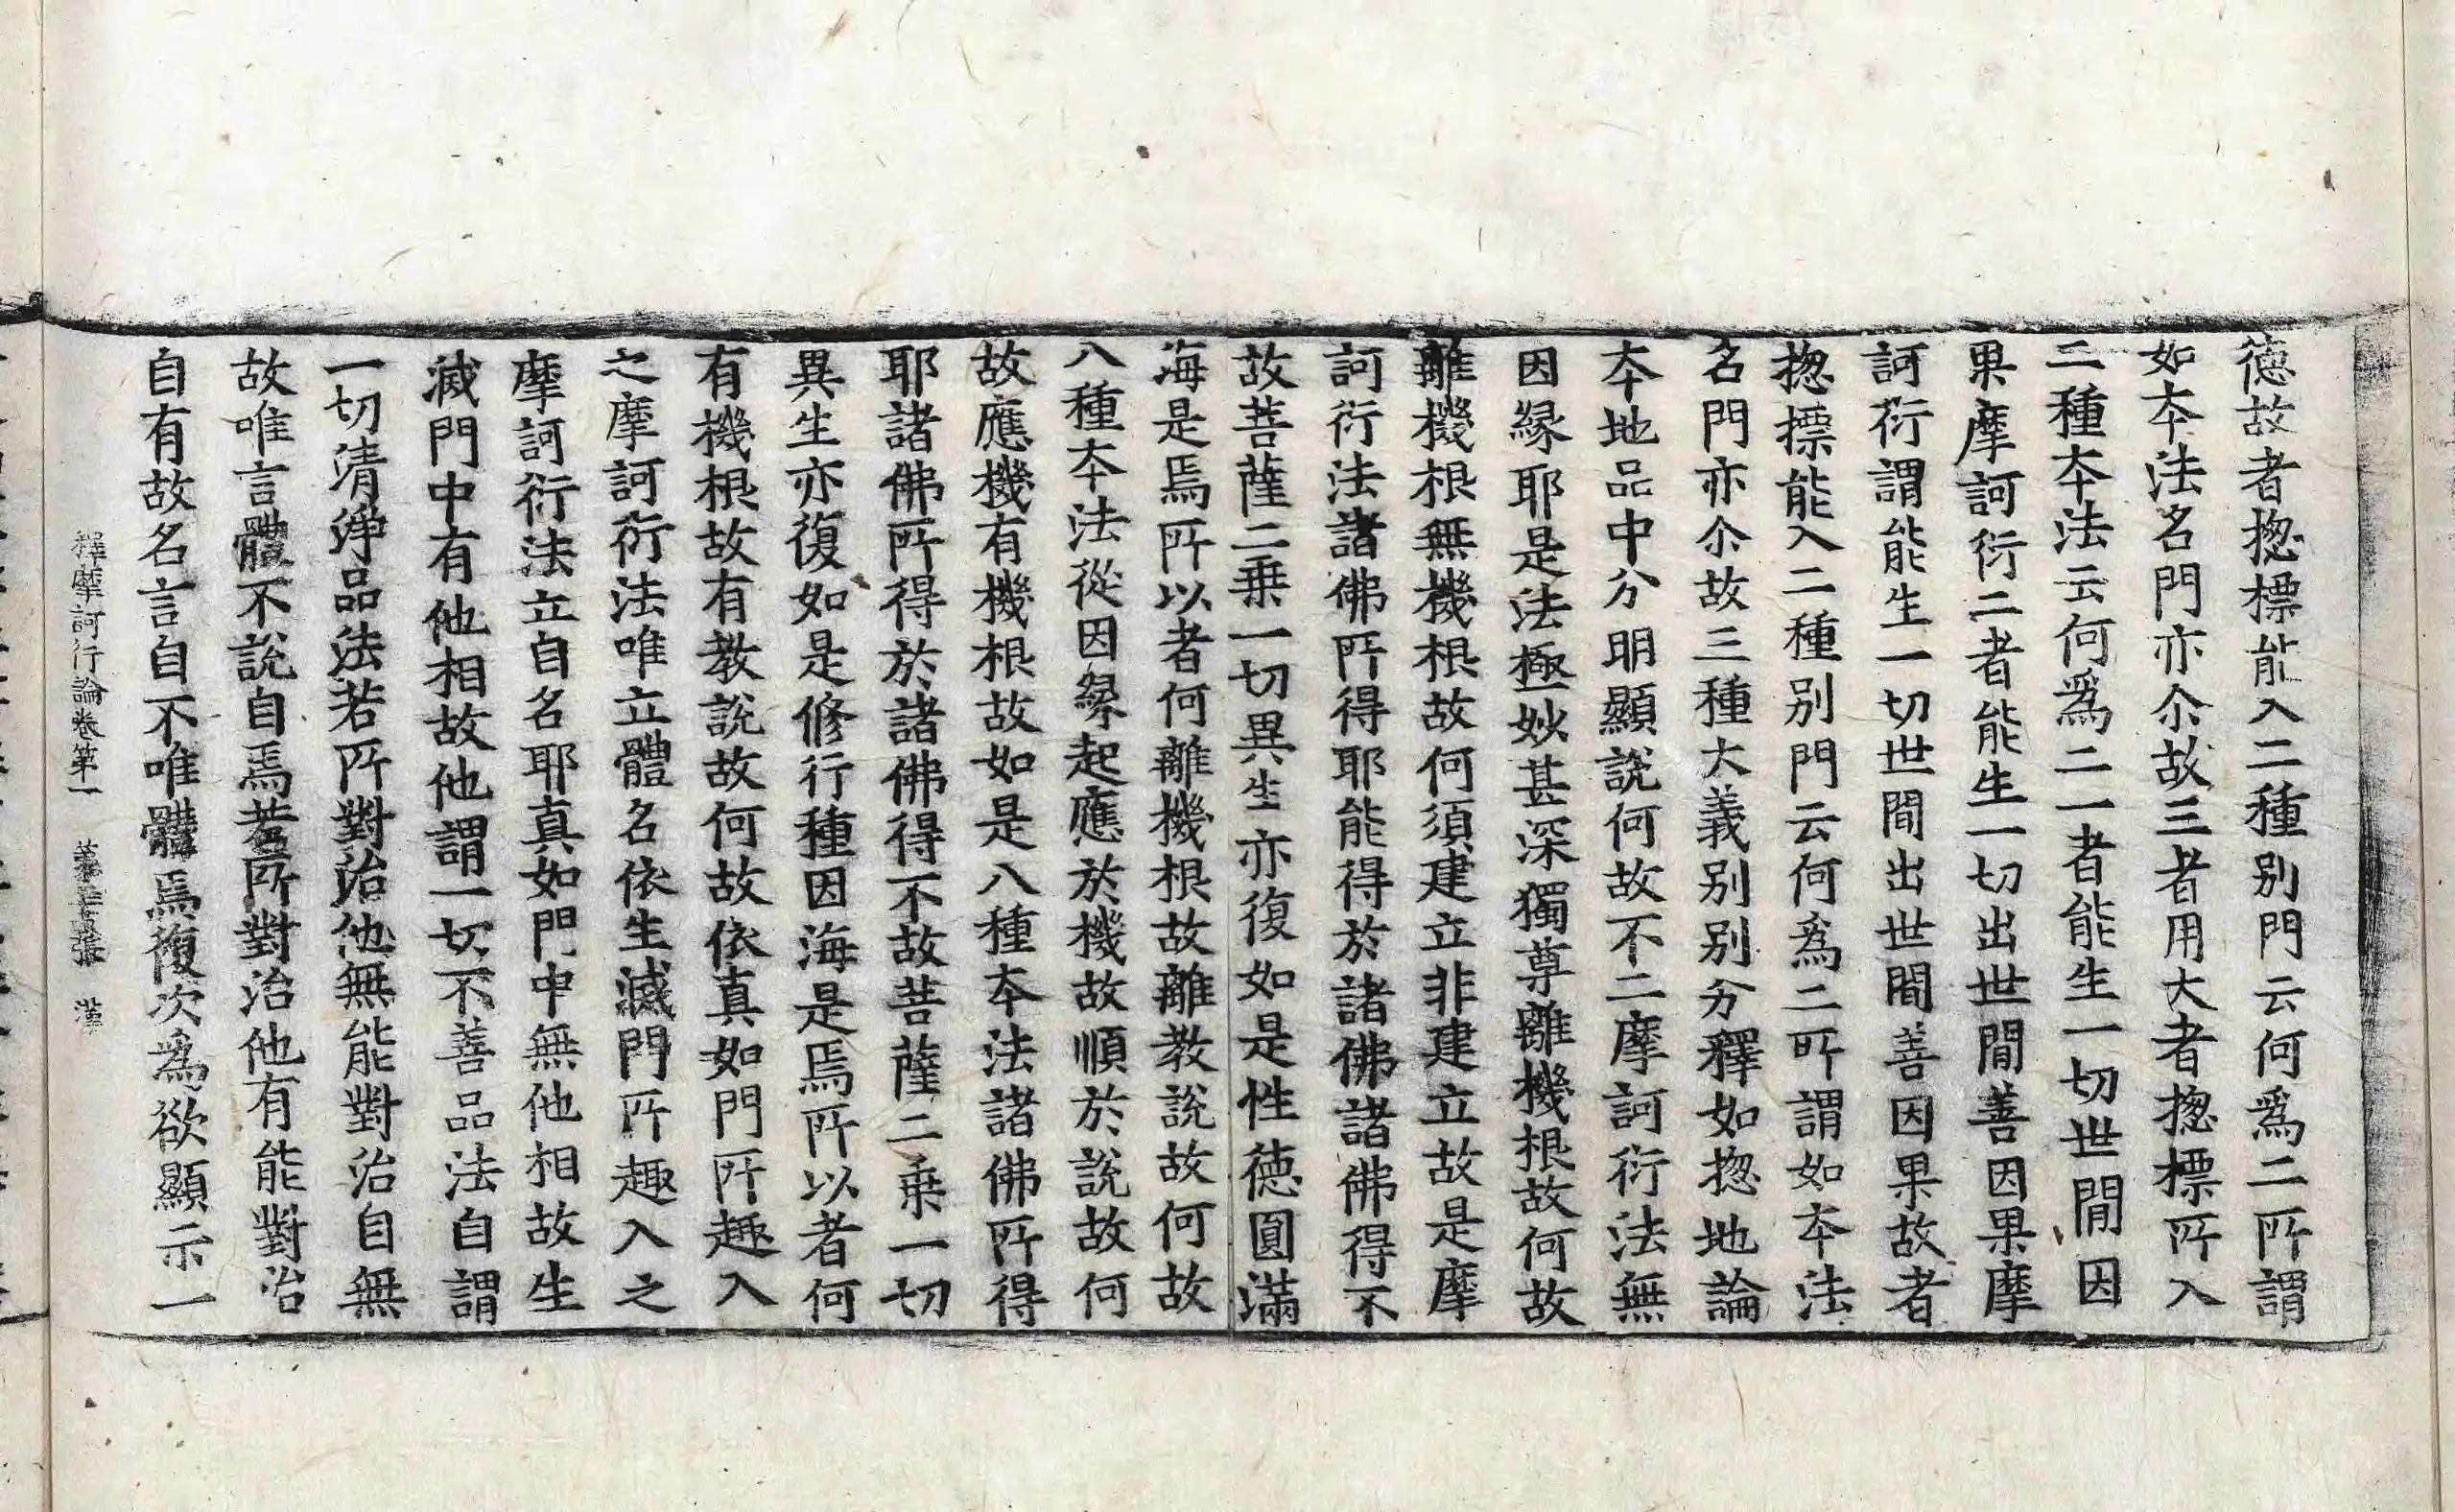 德故者揔標能入二種別門云何爲二所謂
如本法名門亦尒故三者用大者揔標所入
二種本法云何爲二一者能生一切世間因
果摩訶衍二者能生一切出世間善因果摩
訶衍謂能生一切世間出世間善因果故者
揔標能入二種別門云何爲二所謂如本法
名門亦尒故三種大義別別分釋如揔地論
本地品中分明顯說何故不二摩訶衍法無
因緣耶是法極妙甚深獨尊離機根故何故
離機根無機根故何須建立非建立故是摩
訶衍法諸佛所得耶能得於諸佛諸佛得不
故菩薩二乗一切異生亦復如是性德圓滿
海是焉所以者何離機根故離教說故何故
八種本法從因緣起應於機故順於說故何
故應機有機根故如是八種本法諸佛所得
耶諸佛所得於諸佛得不故菩薩二乗一切
異生亦復如是修行種因海是焉所以者何
有機根故有教說故何故依真如門所趣入
之摩訶衍法唯立體名依生滅門所趣入之
摩訶衍法立自名耶真如門中無他相故生
滅門中有他相故他謂一切不善品法自謂
一切清淨品法若所對治他無能對治自無
故唯言體不說自焉若所對治他有能對治
自有故名言自不唯體焉復次為欲顯示一
釋摩訶衍論卷第一 張 漢